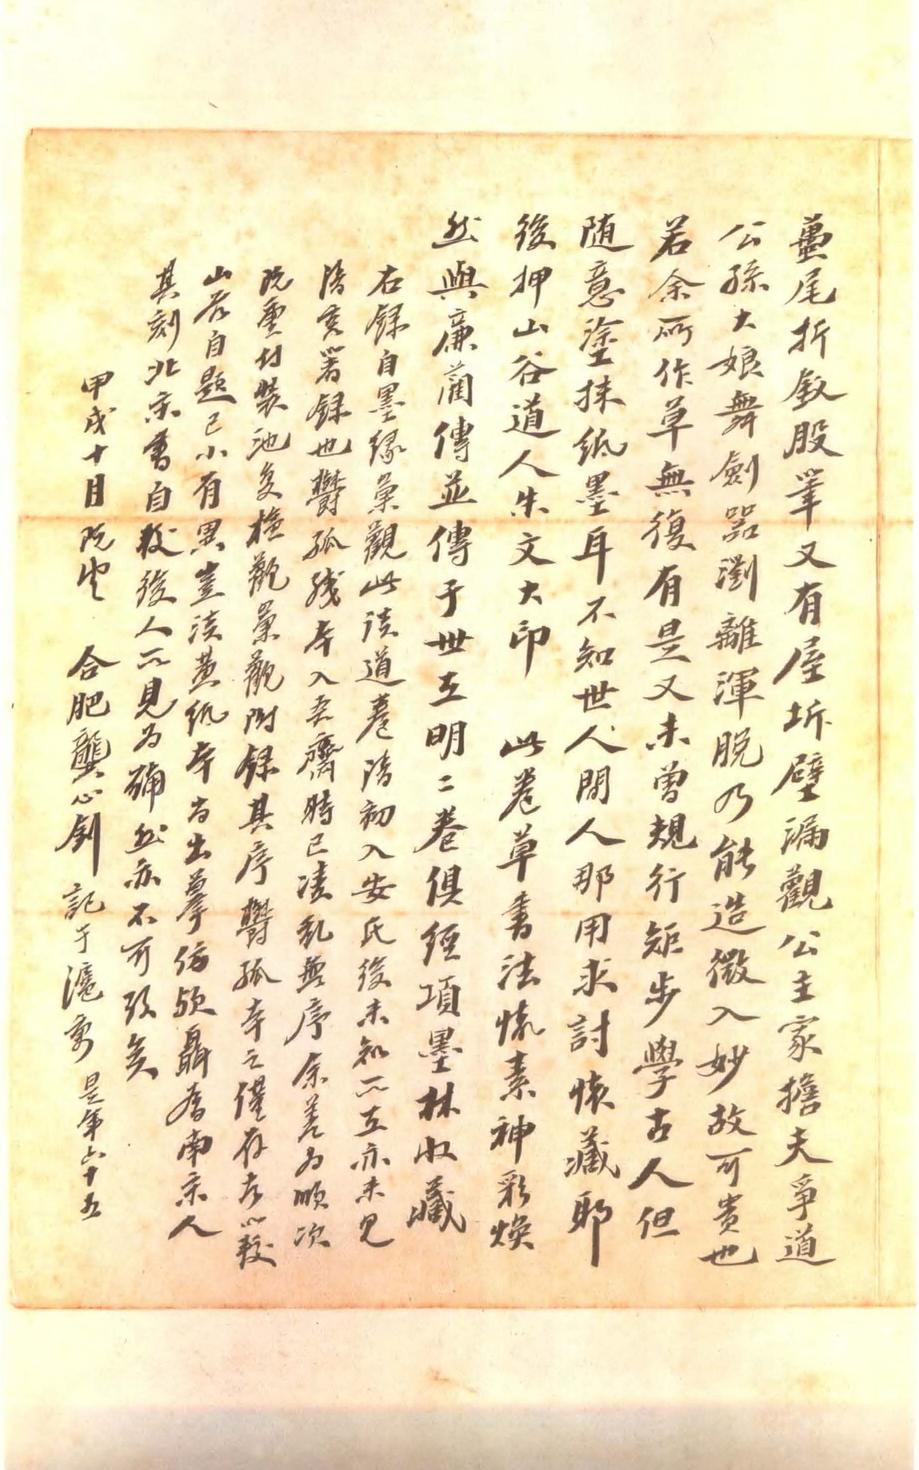 蠆尾折釵股筆又有屋坼壁漏觀公主家擔夫爭道
公孫大娘舞劍器瀏離渾脫乃能造微入妙故可貴也
若余所作草無復有是又未曾規行矩步學古人但
隨意塗抹紙墨耳不知世人閒人那用求討懷藏耶
後押山谷道人朱文大印 此卷草書法懷素神彩煥
然與廉藺傳並傳于世立明二卷俱經項墨林收藏
右錄自墨緣彙觀此諸道卷隋初入安氏後未知所在亦未見
著錄也鬱孤殘本入吾齋時已凌亂無序余為順次
既重付裝池復檢觀彙觀附錄其序鬱孤本之僅存者以校
山谷自題已小有異豈諸黃紙本尚出摹仿歟聶舊南宋人
其刻北宋書自較後人所見為確然亦不可考矣
甲戌十月既 合肥龔心釗記于滬 是年六十五